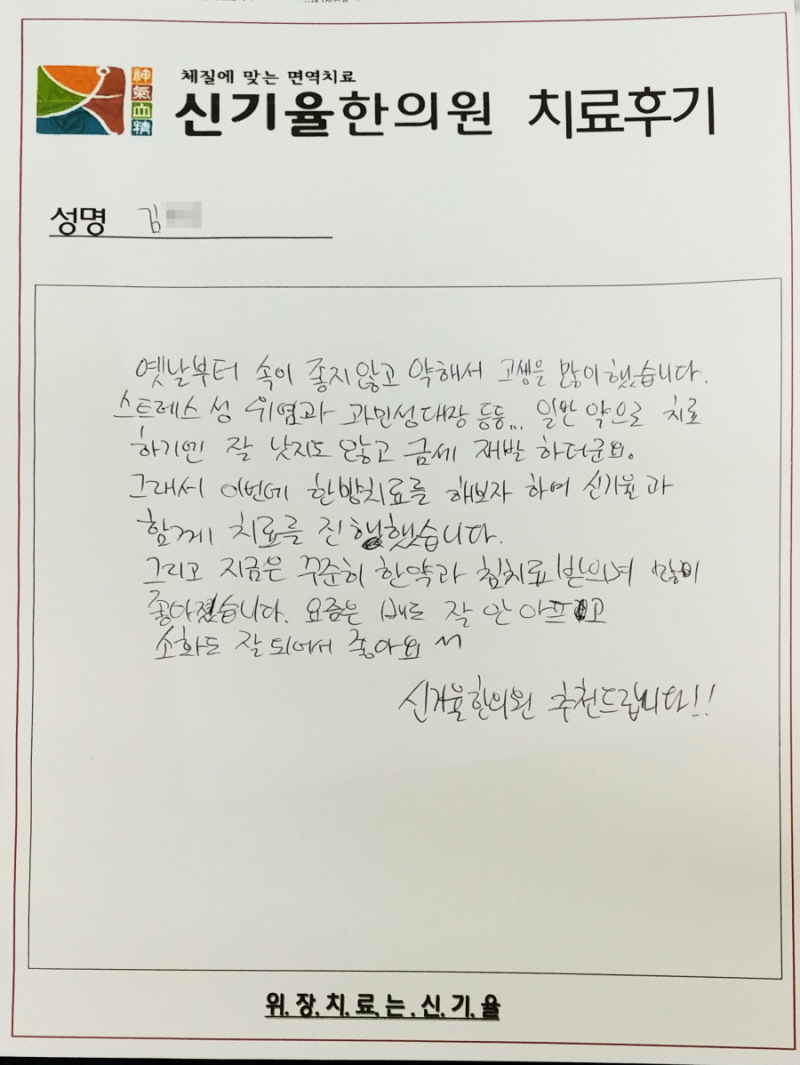 체질에 맞는 면역치료
神氣血精
신기율한의원 치료후기
성명 김
옛날부터 속이 좋지않고 약해서 고생을 많이했습니다.
스트레스성 위염과 과민성대장 등등... 일반 약으로 치료
하기엔 잘 낫지도 않고 금세 재발 하더군요.
그래서 이번에 한방치료를 해보자 하여 신기율과
함께 치료를 진행했습니다.
그리고 지금은 꾸준히 한약과 침치료 받으며 많이
좋아졌습니다. 요즘은 배도 잘 안아프고
소화도 잘 되어서 좋아요 ^^
신기율한의원 추천드립니다!!
위.장.치.료.는.신.기.율